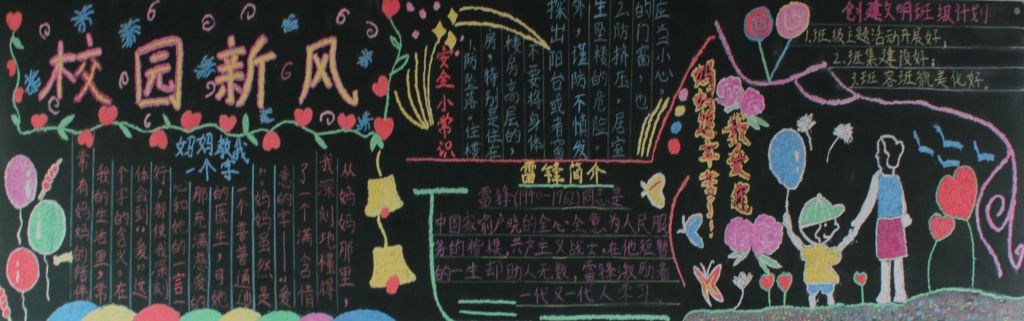 校园新风
妈妈教我
一个字
从妈妈那里，
我深刻地懂得
了一个满含情
意的字——“爱
”。妈妈虽然是
一个普普通通
的医生，可她
那充满热爱的
心和她的一言一
行，都使我深刻
体会到“爱”这
个字的含义。在
我的生活里，常
常有妈妈的陪伴
安全小常识
1.防坠落。住楼
房，特别是住在
楼房高层的，
不要将身体
探出阳台或者窗
外，谨防不慎发
生坠楼的危险。
2.防挤压。居室
的门窗，也
应当小心。
雷锋简介
雷锋(1940-1962)同志是
中国家喻户晓的全心全意为人民服
务的楷模，共产主义战士，在他短暂
的一生却助人无数，雷锋激励着
一代又一代人学习
妈妈您辛苦了
我爱您
创建文明班级计划
1.班级主题活动开展好。
2.班集建设好。
3.班容班貌美化好。